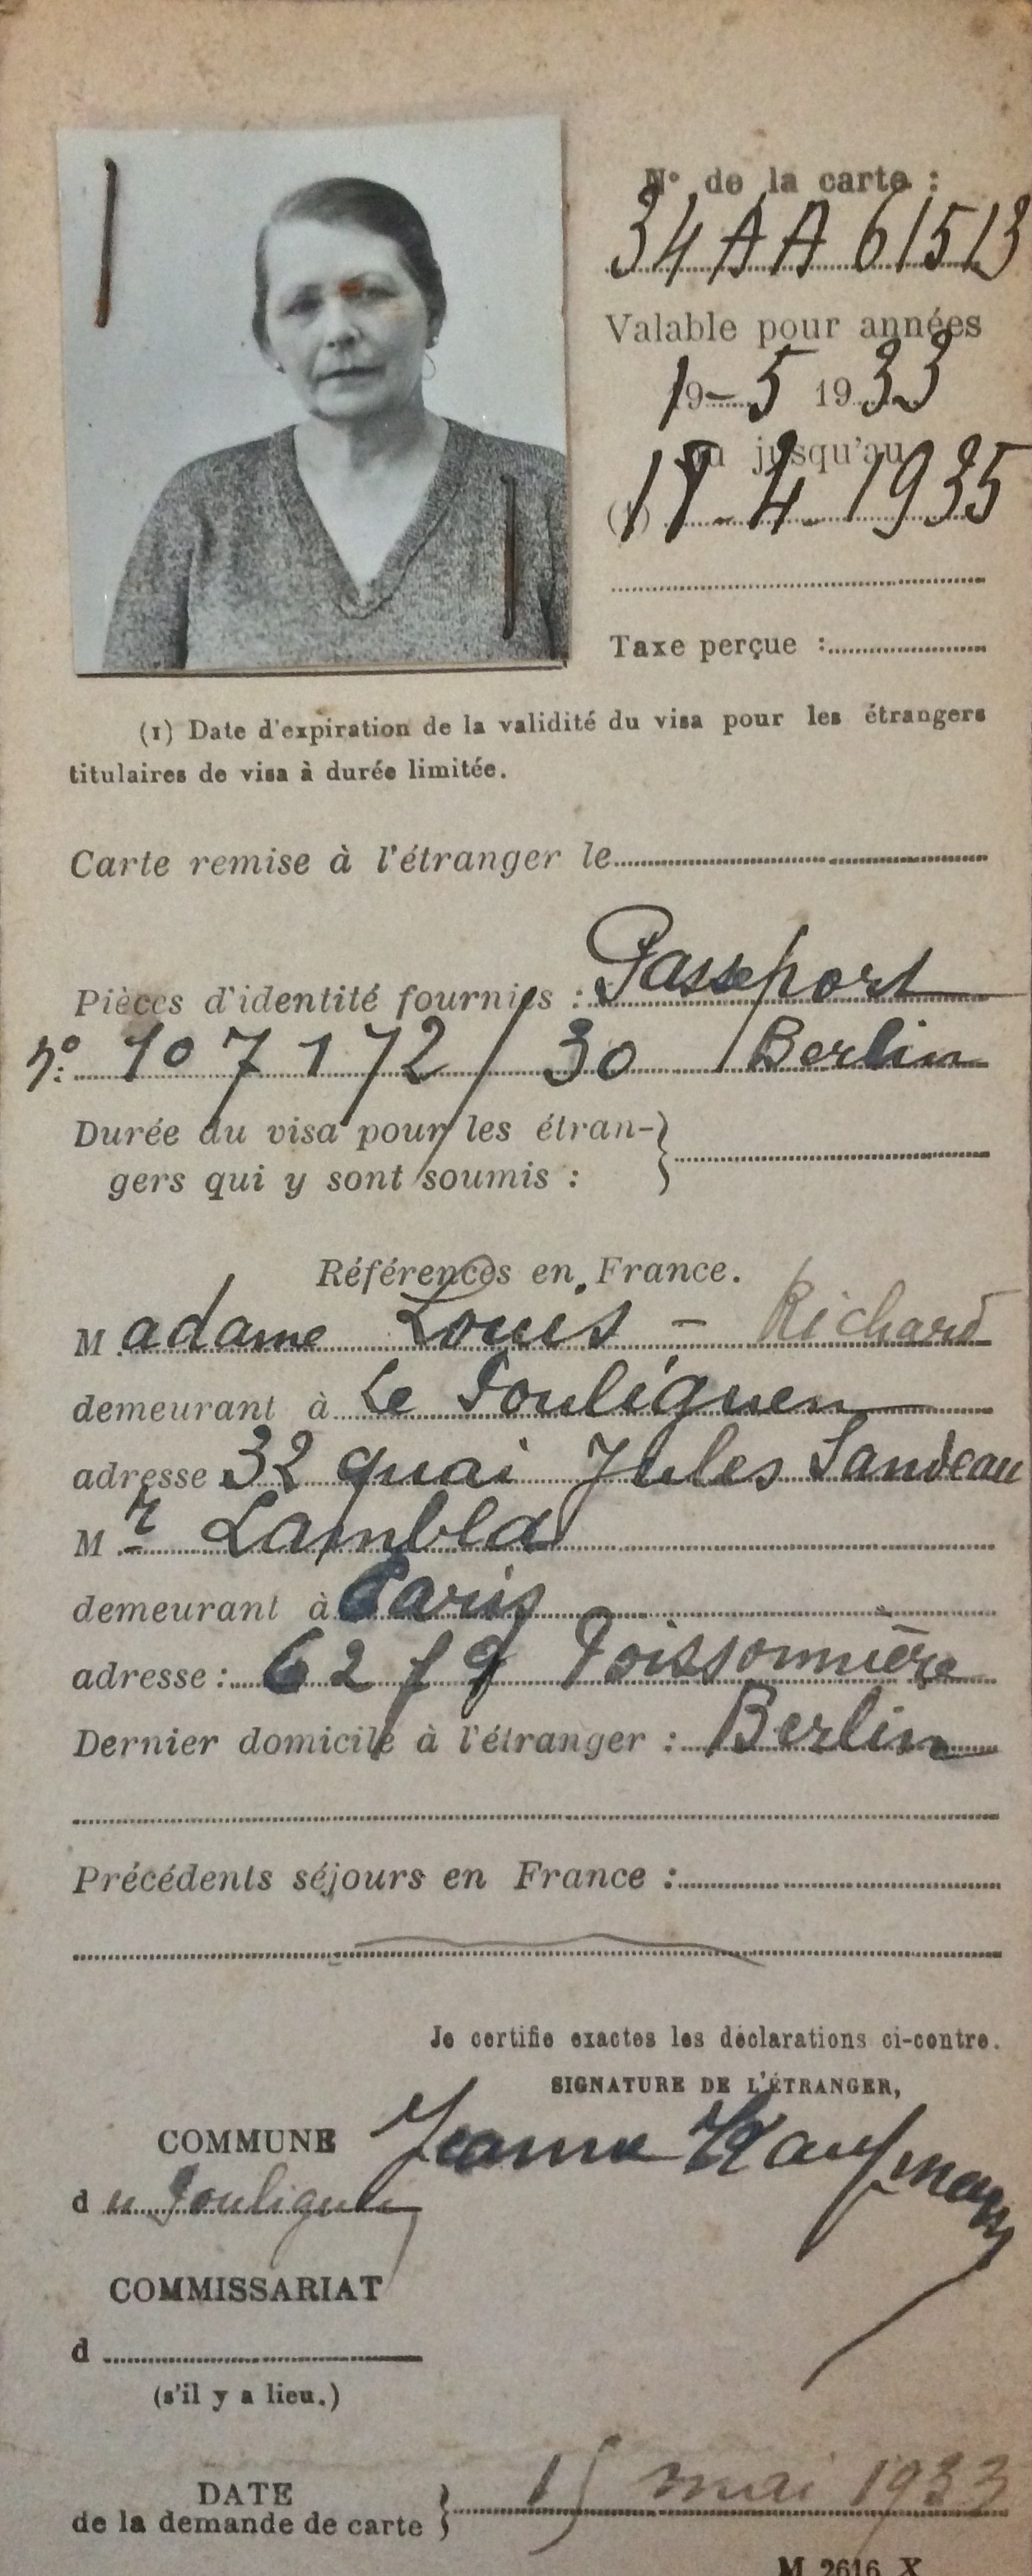 N° de la carte :
34 AA 61513
Valable pour années
19-5 1933
ou jusqu'au
(1) 18-4-1935
Taxe perçue :
(1) Date d'expiration de la validité du visa pour les étrangers
titulaires de visa à durée limitée.
Carte remise à l'étranger le
Pièces d'identité fournies : Passeport
n° 107172/30 Berlin
Durée du visa pour les étran-
gers qui y sont soumis :
Références en France.
Madame Louis - Richard
demeurant à Le Pouliguen
adresse 32 quai Jules Sandeau
Mr Lambla
demeurant à Paris
adresse : 62 fg Poissonnière
Dernier domicile à l'étranger : Berlin
Précédents séjours en France :
Je certifie exactes les déclarations ci-contre.
SIGNATURE DE L'ÉTRANGER,
Jeanne Kaufmann
COMMUNE
du Pouliguen
COMMISSARIAT
d
(s'il y a lieu.)
DATE
de la demande de carte 15 mai 1933
M 2616 X